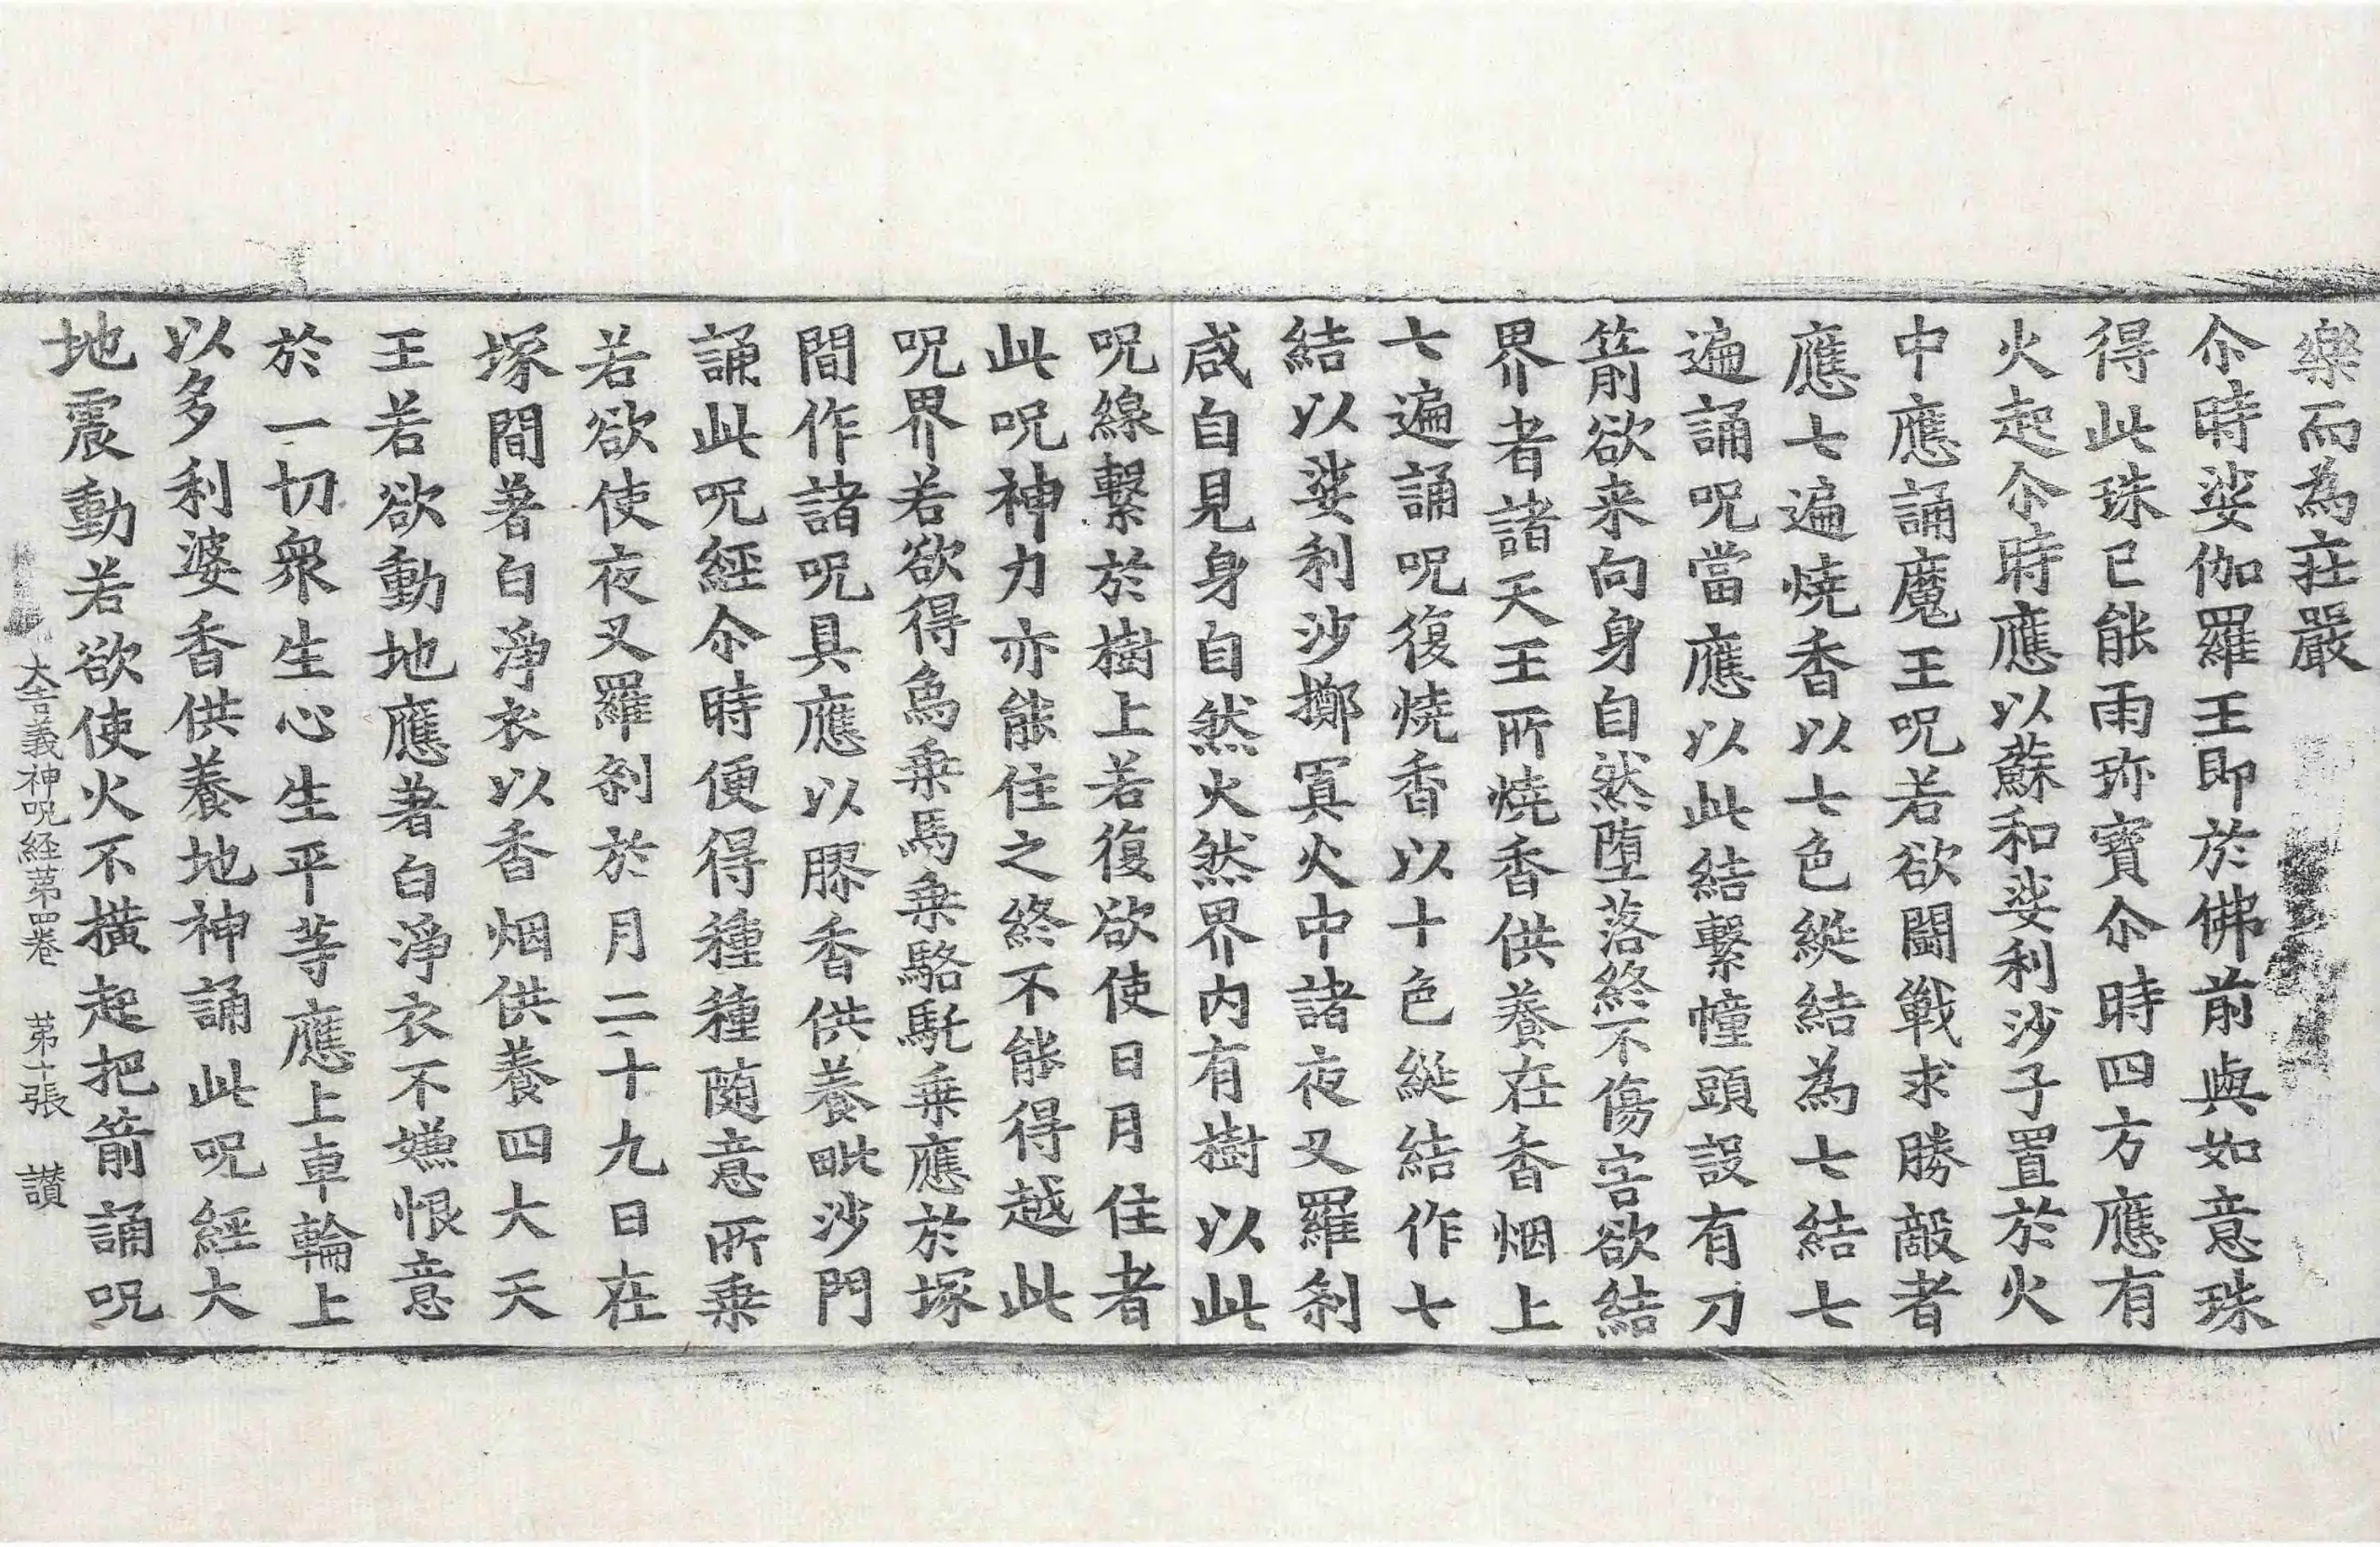 樂而為莊嚴
尒時娑伽羅王即於佛前與如意珠
得此珠已能雨珎寶尒時四方應有
火起尒時應以蘇和娑利沙子置於火
中應誦魔王呪若欲鬪戰求勝敵者
應七遍燒香以七色綖結為七結七
遍誦呪當應以此結繫幢頭設有刀
箭欲来向身自然墮落終不傷害欲結
界者諸天王所燒香供養在香烟上
七遍誦呪復燒香以十色綖結作七
結以娑利沙擲寘火中諸夜叉羅刹
咸自見身自然火然界内有樹以此
呪線繫於樹上若復欲使日月住者
此呪神力亦能住之終不能得越此
呪界若欲得象乗馬乗駱馳乗應於塚
間作諸呪具應以膠香供養毗沙門
誦此呪經尒時便得種種随意所乗
若欲使夜叉羅刹於月二十九日在
塚間著白淨衣以香烟供養四大天
王若欲動地應著白淨衣不嫌恨意
於一切衆生心生平等應上車輪上
以多利婆香供養地神誦此呪經大
地震動若欲使火不橫起把箭誦呪
大吉義神呪経苐四卷 苐十張 讃